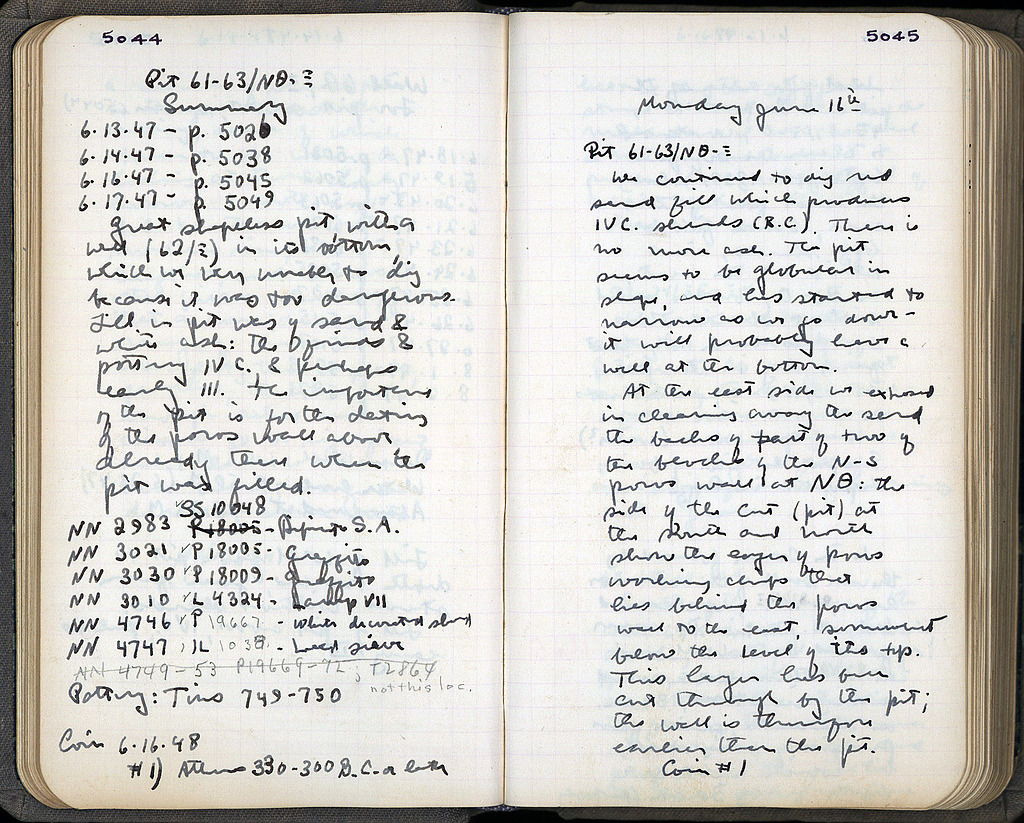 5044
Pit 61-63/ΝΘ-Ξ
Summary
6.13.47 - p. 5026
6.14.47 - p. 5038
6.16.47 - p. 5045
6.17.47 - p. 5049
Great shapeless pit with a
well (62/Ξ) in its bottom,
which we were unable to dig
because it was too dangerous.
Fill in pit was of sand &
white ash: the period &
pottery IV C. & perhaps
early III. The importance
of the pit is for the dating
of the poros wall above
already there when the
pit was filled.
SS 10048
NN 2983 P 18005 - S.A.
NN 3021 P 18005 - Graffito
NN 3030 P 18009 - Graffito
NN 3010 L 4324 - Lamp VII
NN 4746 P 19667 - White decorated sherd
NN 4747 IL 1038 - Lead sieve
NN 4749-53 P19669-72; T2864
not this loc.
Pottery: Tins 749-750
Coin 6.16.48
#1) Athens 330-300 B.C. or later
5045
Monday June 16th
Pit 61-63/ΝΘ-Ξ
We continued to dig red
sand fill which produces
IV C. sherds (B.C.). There is
no more ash. The pit
seems to be globular in
shape, and has started to
narrow as we go down -
it will probably have a
well at the bottom.
At the east side we exposed
in clearing away the sand
the backs of part of two of
the blocks of the N-S
poros wall at ΝΘ: the
side of the cut (pit) at
the South and north
show the layer of poros
working chips that
lies behind the poros
wall to the east, somewhat
below the level of its top.
This layer has been
cut through by the pit;
the wall is therefore
earlier than the pit.
Coin #1